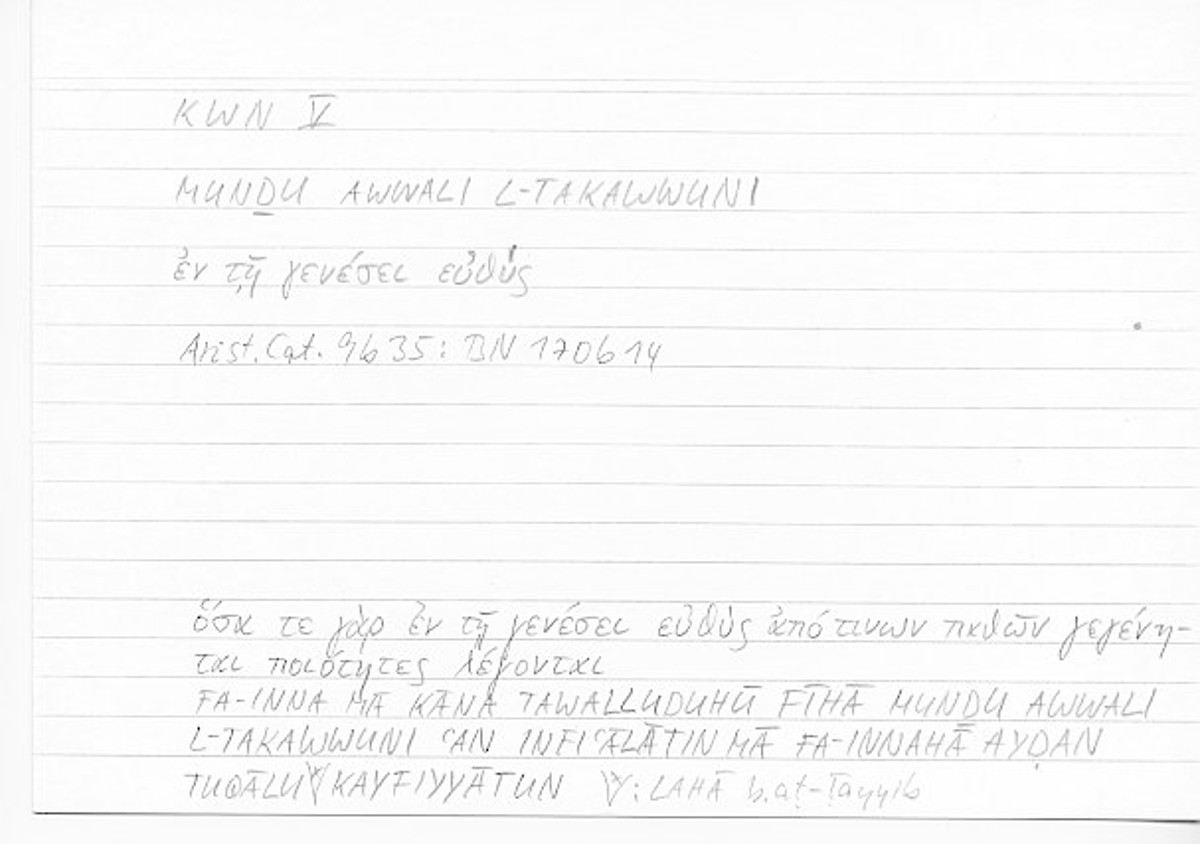 KWN V
MUNḎU AWWALI L-TAKAWWUNI
ἐν τῇ γενέσει εὐθύς
Arist. Cat. 9b35: BN 170b14
ὅσα τε γὰρ ἐν τῇ γενέσει εὐθὺς ἀπό τινων παθῶν γεγένη-
ται ποιότητες λέγονται
FA-INNA MĀ KĀNA TAWALLUDUHŪ FĪHĀ MUNḎU AWWALI
L-TAKAWWUNI ʿAN INFIʿĀLĀTIN MĀ FA-INNAHĀ AYḌAN
TUQĀLU Ꮙ KAYFIYYĀTUN Ꮙ: LAHĀ b.aṭ-Ṭayyib